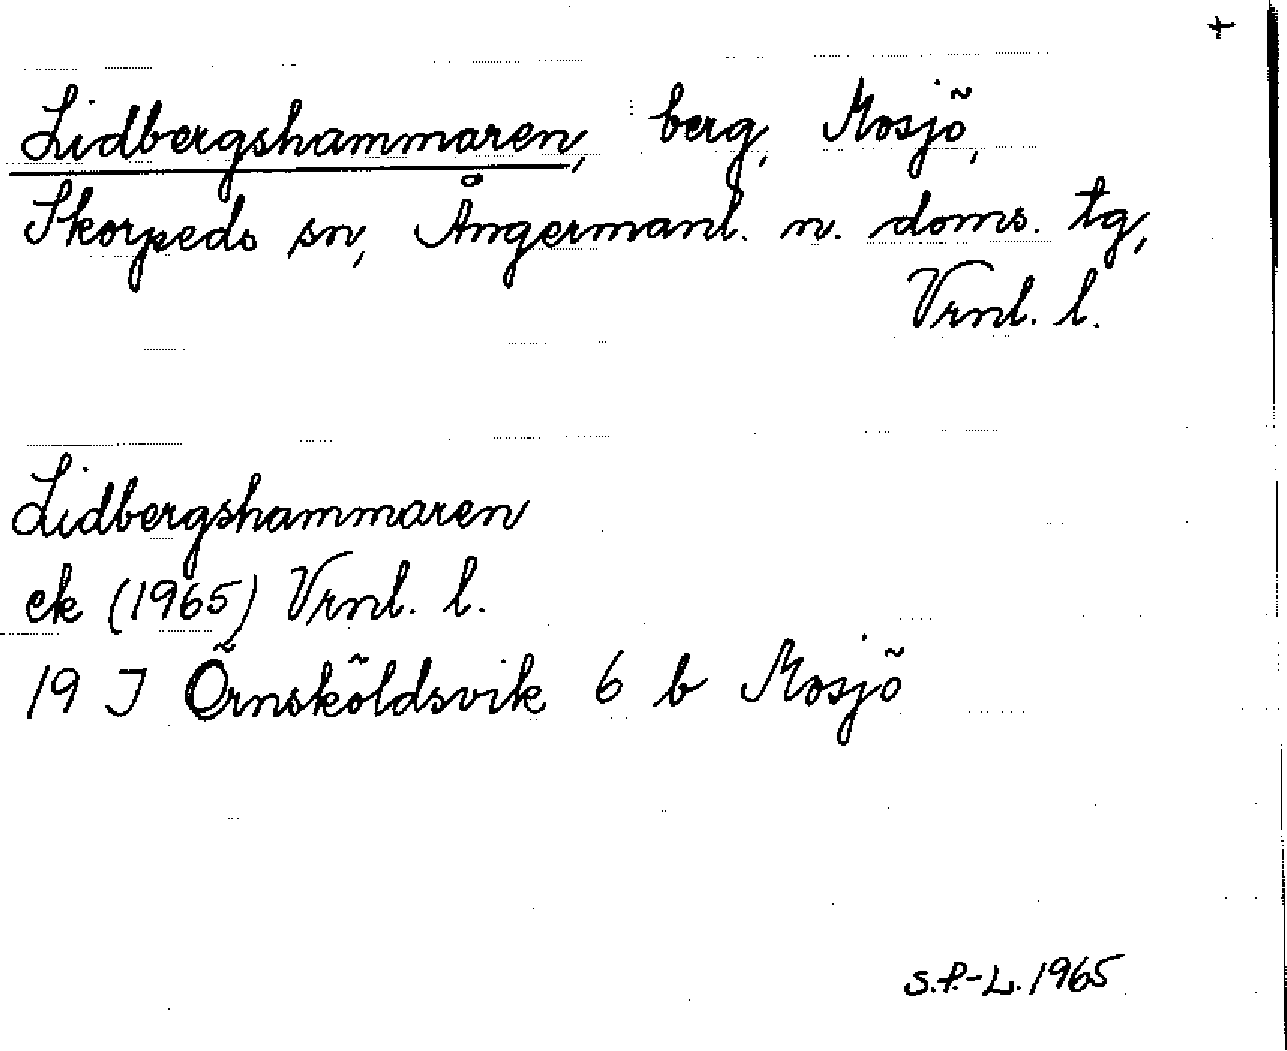 +
Lidbergshammaren, berg, Mosjö,
Skorpeds sn, Ångermanl. n. doms. tg,
Vrnl. l.
Lidbergshammaren
ek (1965) Vrnl. l.
19 J Örnsköldsvik 6 b Mosjö
S.P.-L. 1965